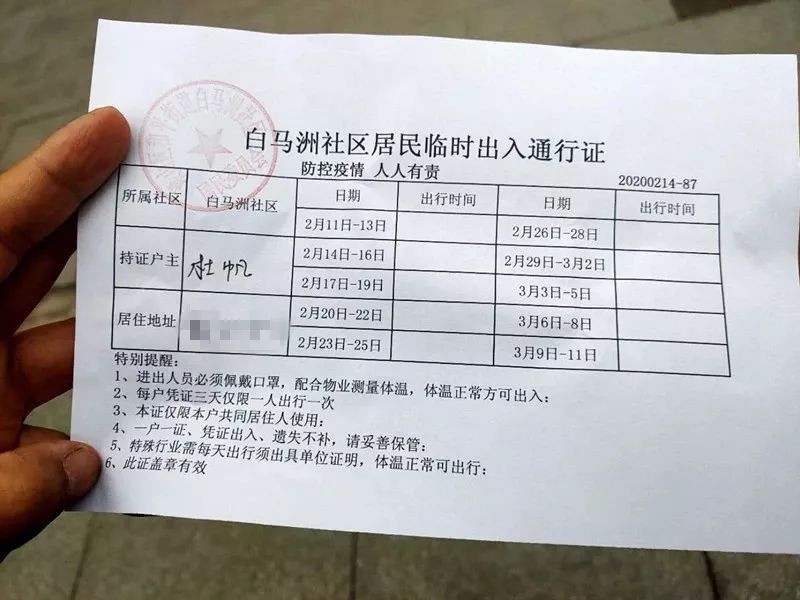 白马洲社区居民临时出入通行证
防控疫情 人人有责
20200214-87
所属社区 白马洲社区 日期 出行时间 日期 出行时间
2月11日-13日 2月26日-28日
持证户主 杜帆 2月14日-16日 2月29日-3月2日
2月17日-19日 3月3日-5日
居住地址 2月20日-22日 3月6日-8日
2月23日-25日 3月9日-11日
特别提醒：
1、进出人员必须佩戴口罩，配合物业测量体温，体温正常方可出入：
2、每户凭证三天仅限一人出行一次
3、本证仅限本户共同居住人使用：
4、一户一证、凭证出入、遗失不补，请妥善保管：
5、特殊行业需每天出行须出具单位证明，体温正常可出行：
6、此证盖章有效